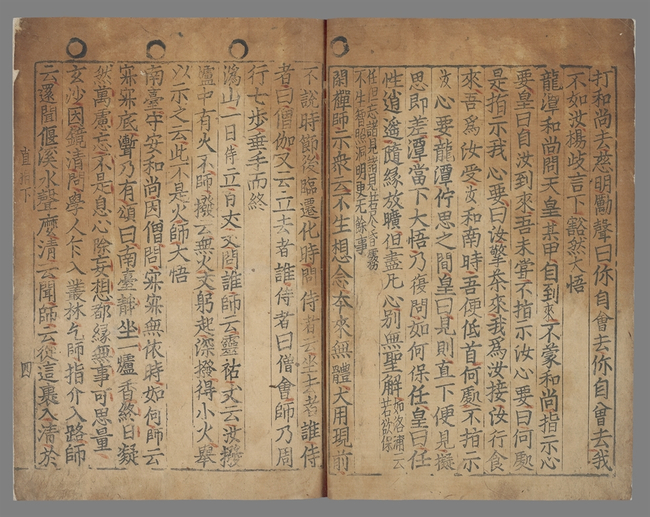 打和尚去慈明勵聲曰你自會去你自會去我
不如汝楊歧言下豁然大悟
龍潭和尚問天皇某甲自到來不蒙和尚指示心
要皇曰自汝到來吾未甞不指示汝心要曰何處
是指示我心要曰汝擎茶來我爲汝接汝行食
來吾爲汝受汝和南時吾便低首何處不指示
汝心要龍潭佇思之間皇曰見則直下便見擬
思即差潭當下大悟乃復問如何保任皇曰任
性逍遙隨緣放曠但盡凡心別無聖解如洛浦云
若欲保
任但忘諸見諸見若
不生智照洞明更無餘事
閑禪師示衆云不生想念本來無體大用現前
不說時節後臨遷化時問侍者云坐去者誰侍
者曰僧伽又云立去者誰侍者曰僧會師乃周
行七步垂手而終
潙山一日侍立百丈丈問誰師云靈祐丈云汝撥
爐中有火不師撥云無火丈躬起深撥得小火舉
以示之云此不是火師大悟
南臺守安和尚因僧問寂寂無依時如何師云
寂寂底漸乃有頌曰南臺靜坐一爐香終日凝
然萬慮忘不是息心除妄想都緣無事可思量
玄沙因鏡清問學人乍入叢林乞師指介入路師
云還聞偃溪水聲麽清云聞師云從這裏入清於
直指下
四